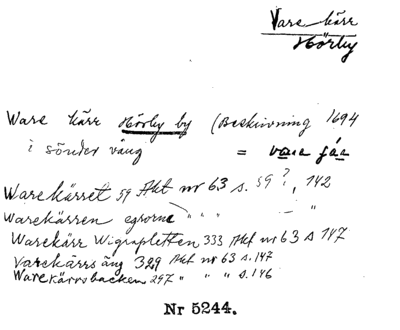 Vare kärr
Hörby
Ware kärr Hörby by (Beskrivning 1694
i sönder vång = vara
Warekärret 59 Akt nr 63 s. 59?, 142
Warekärren egorna " " " - "
Warekärr 333 Akt nr 63 s 147
Varekärrs äng 329 Akt nr 63 s. 147
Warekärrsbacken 297 " " " s. 146
Nr 5244.